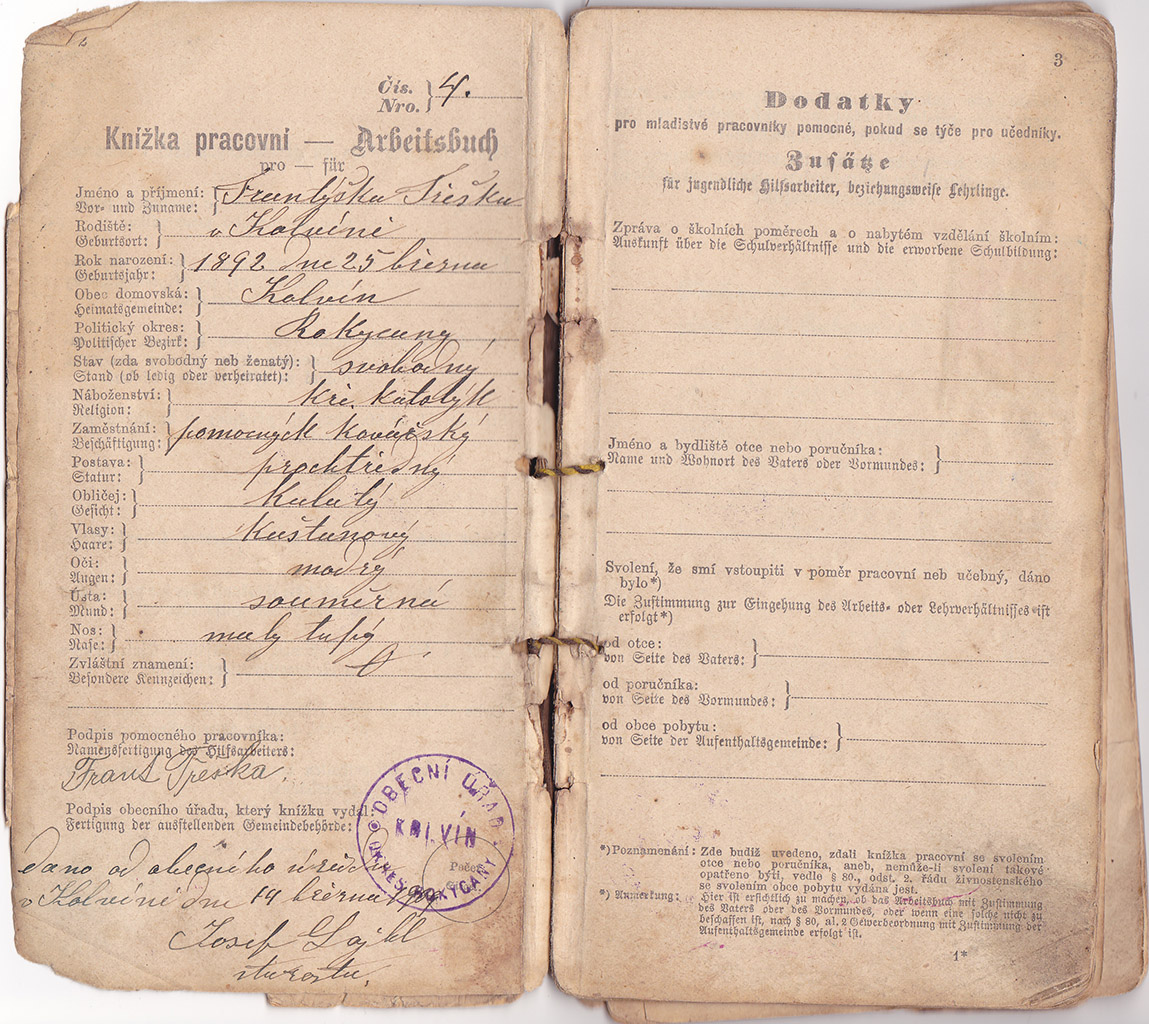 2
Čís.
Nro. } 4.
Knížka pracovní — Arbeitsbuch
pro — für
Jméno a příjmení:
Vor- und Zuname: } Františka Třeška
Rodiště:
Geburtsort: } v Kolvíně
Rok narození:
Geburtsjahr: } 1892 dne 25 března
Obec domovská:
Heimatsgemeinde: } Kolvín
Politický okres:
Politischer Bezirk: } Rokycany
Stav (zda svobodný neb ženatý):
Stand (ob ledig oder verheiratet): } svobodný
Náboženství:
Religion: } kři. katolyk
Zaměstnání:
Beschäftigung: } pomocnýk kovářský
Postava:
Statur: } prostřední
Obličej:
Gesicht: } Kulatý
Vlasy:
Haare: } Kaštanový
Oči:
Augen: } modrý
Ústa:
Mund: } souměrná
Nos:
Nase: } maly tupý
Zvláštní znamení:
Besondere Kennzeichen: } 0
Podpis pomocného pracovníka:
Namensfertigung des Hilfsarbeiters:
Frant Třeška.
Podpis obecního úřadu, který knížku vydal:
Fertigung der ausstellenden Gemeindebehörde:
OBECNÍ ÚŘAD
KOLVÍN
OKRES ROKYCANY
dáno od obecního úřadu
v Kolvíně dne 14 března
Josef
starosta.
3
Dodatky
pro mladistvé pracovníky pomocné, pokud se týče pro učedníky.
Zusätze
für jugendliche Hilfsarbeiter, beziehungsweise Lehrlinge.
Zpráva o školních poměrech a o nabytém vzdělání školním:
Auskunft über die Schulverhältnisse und die erworbene Schulbildung:
Jméno a bydliště otce nebo poručníka:
Name und Wohnort des Vaters oder Vormundes: }
Svolení, že smí vstoupiti v poměr pracovní neb učebný, dáno
bylo*)
Die Zustimmung zur Eingehung des Arbeits- oder Lehrverhältnisses ist
erfolgt*)
od otce:
von Seite des Vaters: }
od poručníka:
von Seite des Vormundes: }
od obce pobytu:
von Seite der Aufenthaltsgemeinde: }
*) Poznamenání: Zde budiž uvedeno, zdali knížka pracovní se svolením
otce nebo poručníka, aneb, nemůže-li svolení takové
opatřeno býti, vedle § 80., odst. 2. řádu živnostenského
se svolením obce pobytu vydána jest.
*) Anmerkung: Hier ist ersichtlich zu machen, ob das Arbeitsbuch mit Zustimmung
des Vaters oder des Vormundes, oder wenn eine solche nicht zu
beschaffen ist, nach § 80, al. 2 Gewerbeordnung mit Zustimmung der
Aufenthaltsgemeinde erfolgt ist.
1*